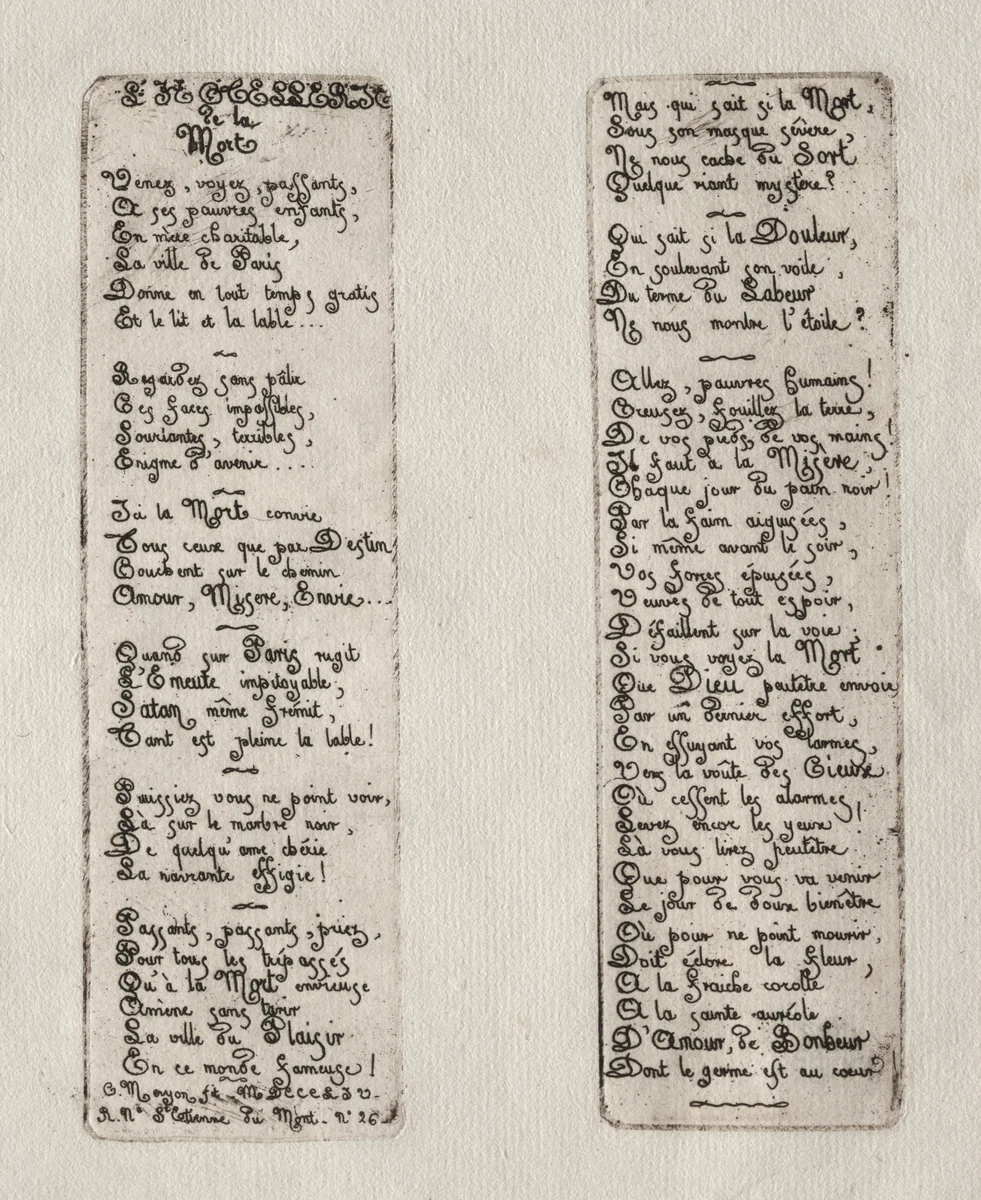 L'HOTELLERIE
de la
Mort
Venez, voyez, passants,
A ses pauvres enfants,
En mère charitable,
La ville de Paris
Donne en tout temps gratis
Et le lit et la table...
Regardez sans pâlir
Ces faces impassibles,
Souriantes, terribles,
Enigme d'avenir....
Ici la Mort convie
Tous ceux que par Destin,
Couchent sur le chemin
Amour, Misere, Envie...
Quand sur Paris rugit
L'Emeute impitoyable,
Satan même frémit,
Tant est pleine la table!
Puissiez vous ne point voir,
Là sur le marbre noir,
De quelqu'ame chérie
La navrante effigie!
Passants, passants, priez,
Pour tous les trépassés
Qu'à la Mort envieuse
Amène sans tarir
La ville du Plaisir
En ce monde fameuse!
C. Meryon ft. MDCCCLIV.
R. Ne St Etienne du Mont. n° 26
Mais qui sait si la Mort,
Sous son masque sévère,
Ne nous cache du Sort
Quelque riant mystère?
Qui sait si la Douleur,
En soulevant son voile,
Du terme du Labeur
Ne nous montre l'étoile?
Allez, pauvres humains!
Creusez, fouillez la terre,
De vos pieds, de vos mains!
Il faut à la Misère,
Chaque jour du pain noir!
Par la faim aiguisées,
Si même avant le soir,
Vos forces épuisées,
Veuves de tout espoir,
Défaillent sur la voie;
Si vous voyez la Mort
Que Dieu peutetre envoie,
Par un dernier effort,
En essuyant vos larmes,
Vers la voûte des Cieux
Où cessent les alarmes,
Levez encor les yeux!
Là vous lirez peutetre
Que pour vous va venir
Le jour de doux bienêtre
Où pour ne point mourir,
Doit éclore la fleur,
A la fraiche corolle
A la sainte auréole
D'Amour, de Bonheur
Dont le germe est au coeur!